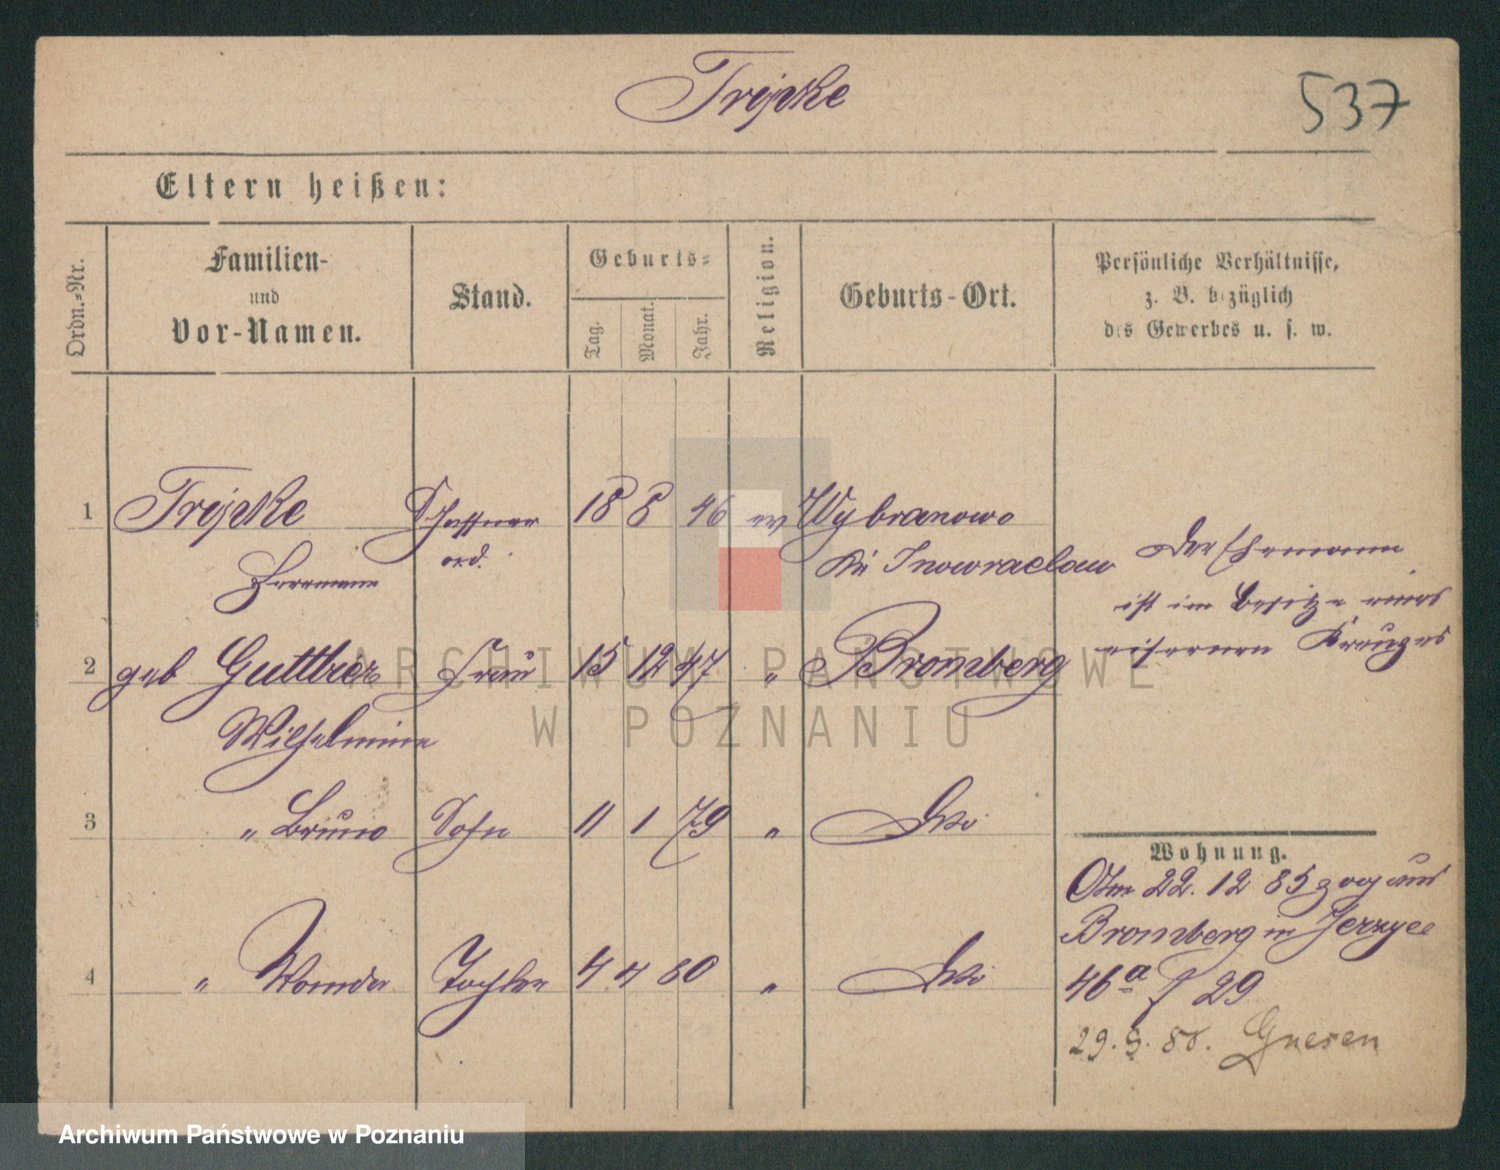 Tripke
537
Eltern heißen:
Ordn.-Nr.
Familien-
und
Vor-Namen.
Stand.
Geburts-
Tag.
Monat.
Jahr.
Religion.
Geburts-Ort.
Persönliche Verhältnisse,
z. B. bezüglich
des Gewerbes u. s. w.
1 Tripke Schaffner 18 8 46 ev Wybranowo
Herrmann ord. Kr. Inowraclaw
Der Ehemann
ist im Besitze eines
eisernen Kreuzes
2 geb Guttbier Frau 15 12 47 " Bromberg
Wilhelmine
3 " Bruno Sohn 11 1 79 "
4 " Wanda Tochter 4 4 80 "
Wohnung.
Am 22. 12 85 zog aus
Bromberg in Jerzyce
46a 29
29. 88. Gnesen
ARCHIWUM PAŃSTWOWE
W POZNANIU
Archiwum Państwowe w Poznaniu